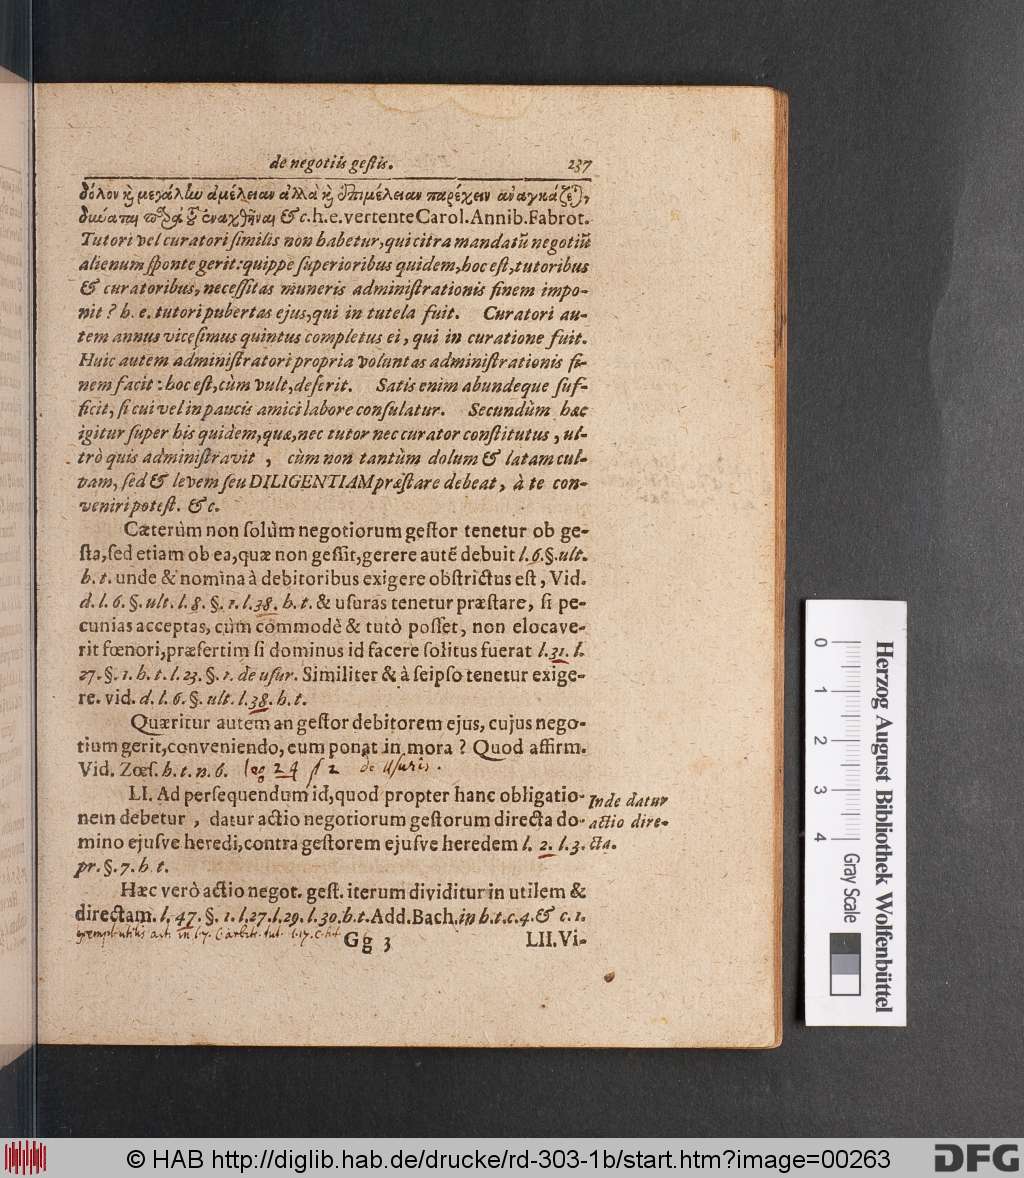 de negotiis gestis. 237
δόλον καὶ μεγάλην ἀμέλειαν ἀλλὰ καὶ ἐπιμέλειαν παρέχειν ἀναγκάζει,
ἐναχθῆναι & c. h. e. vertente Carol. Annib. Fabrot.
Tutori vel curatori similis non habetur, qui citra mandatũ negotiũ
alienum sponte gerit: quippe superioribus quidem, hoc est, tutoribus
& curatoribus, necessitas muneris administrationis finem impo-
nit? h. e. tutori pubertas ejus, qui in tutela fuit. Curatori au-
tem annus vicesimus quintus completus ei, qui in curatione fuit.
Huic autem administratori propria voluntas administrationis fi-
nem facit: hoc est, cùm vult, deserit. Satis enim abundeque suf-
ficit, si cui vel in paucis amici labore consulatur. Secundùm hæc
igitur super his quidem, quæ, nec tutor nec curator constitutus, ul-
trò quis administravit, cùm non tantùm dolum & latam cul-
pam, sed & levem seu DILIGENTIAM præstare debeat, à te con-
veniri potest. & c.
Cæterùm non solùm negotiorum gestor tenetur ob ge-
sta, sed etiam ob ea, quæ non gessit, gerere autẽ debuit l. 6. §. ult.
h. t. unde & nomina à debitoribus exigere obstrictus est, Vid.
d. l. 6. §. ult. l. 8. §. 1. l. 38. h. t. & usuras tenetur præstare, si pe-
cunias acceptas, cùm commodè & tutò posset, non elocave-
rit fœnori, præsertim si dominus id facere solitus fuerat l. 31. l.
27. §. 1. h. t. l. 23. §. 1. de usur. Similiter & à seipso tenetur exige-
re. vid. d. l. 6. §. ult. l. 38. h. t.
Quæritur autem an gestor debitorem ejus, cujus nego-
tium gerit, conveniendo, eum ponat in mora? Quod affirm.
Vid. Zœs. h. t. n. 6. leg 24 § 2 de Usuris.
LI. Ad persequendum id, quod propter hanc obligatio-
nem debetur, datur actio negotiorum gestorum directa do-
mino ejusve heredi, contra gestorem ejusve heredem l. 2. l. 3.
pr. §. 7. h. t.
Inde datur
actio dire-
cta.
Hæc verò actio negot. gest. iterum dividitur in utilem &
directam. l. 47. §. 1. l. 27. l. 29. l. 30. h. t. Add. Bach. in h. t. c. 4. & c. 1.
Gg 3 LII. Vi-
Herzog August Bibliothek Wolfenbüttel
0 1 2 3 4 Gray Scale
© HAB http://diglib.hab.de/drucke/rd-303-1b/start.htm?image=00263
DFG